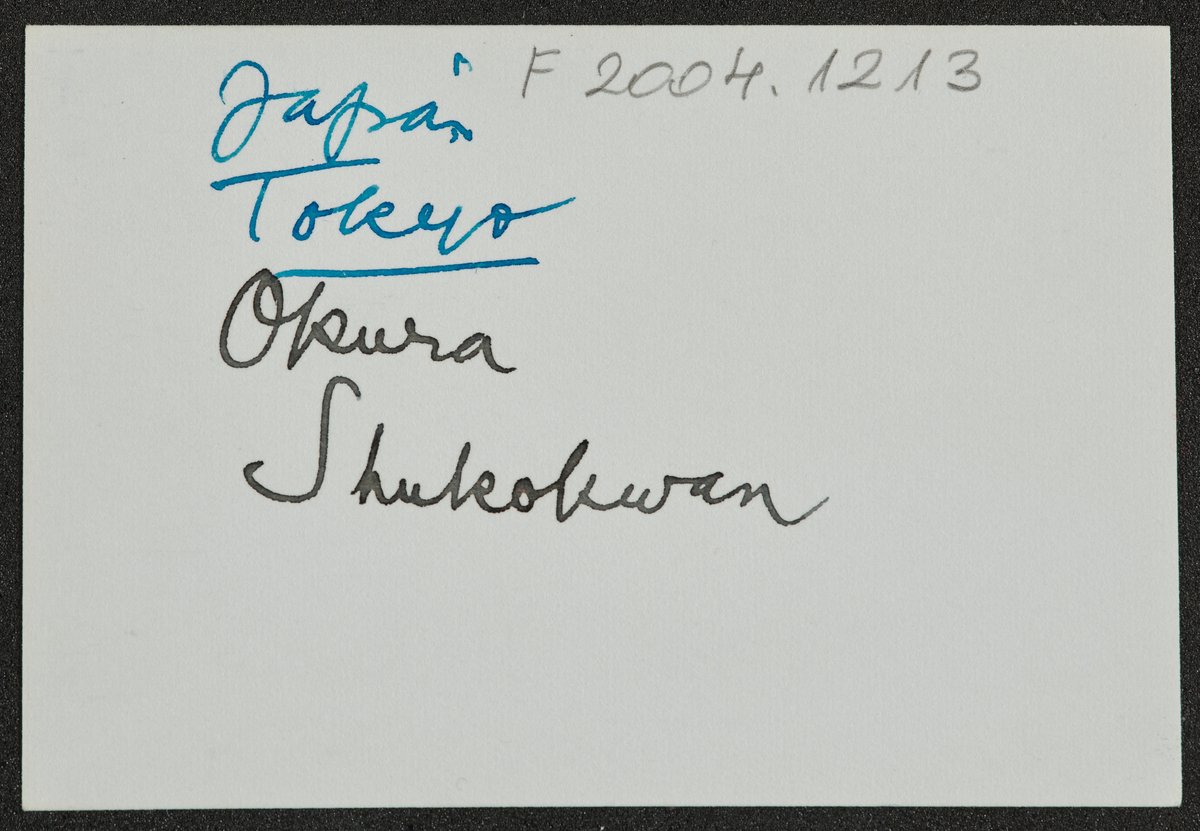 Japán F 2004.1213
Tokyo
Okura
Shukokwan